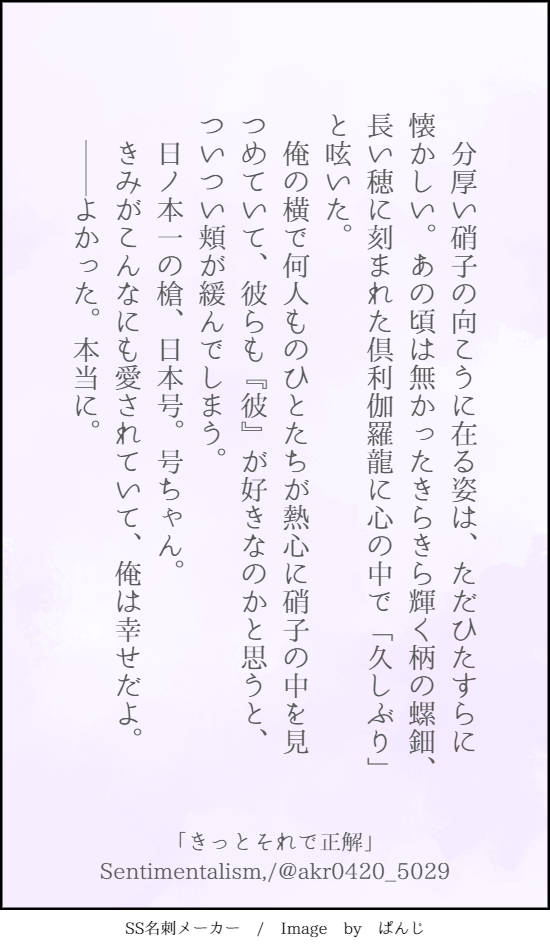 分厚い硝子の向こうに在る姿は、ただひたすらに
懐かしい。あの頃は無かったきらきら輝く柄の螺鈿、
長い穂に刻まれた倶利伽羅龍に心の中で「久しぶり」
と呟いた。
俺の横で何人ものひとたちが熱心に硝子の中を見
つめていて、彼らも『彼』が好きなのかと思うと、
ついつい頬が緩んでしまう。
日ノ本一の槍、日本号。号ちゃん。
きみがこんなにも愛されていて、俺は幸せだよ。
――よかった。本当に。
「きっとそれで正解」
Sentimentalism,/@akr0420_5029
SS名刺メーカー / Image by ぱんじ